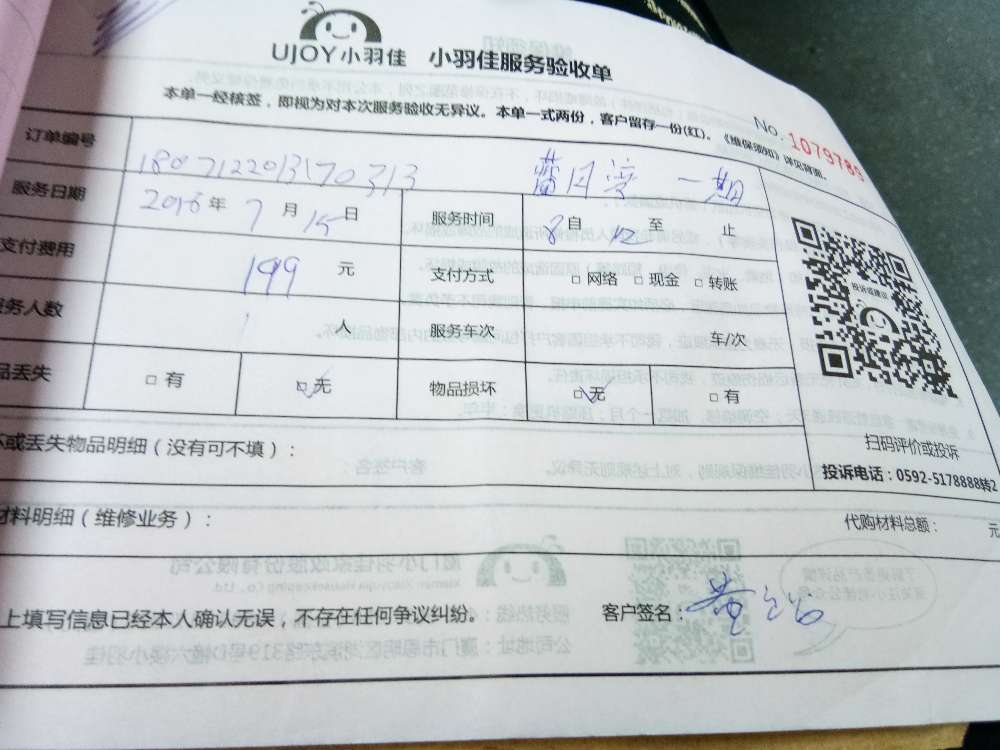 UJOY小羽佳 小羽佳服务验收单
本单一经核签，即视为对本次服务验收无异议。本单一式两份，客户留存一份(红)。《维保须知》详见背面。
No. 1079789
订单编号 1807122013170313 蓝月湾 一期
服务日期 2018年 7月 15日 服务时间 8自 12至 止
支付费用 199 元 支付方式 □ 网络 □ 现金 □ 转账
务人数 1 人 服务车次 车/次
品丢失 □ 有 □ 无 物品损坏 □ 无 □ 有
投诉或建议
扫码评价或投诉
投诉电话：0592-5178888转2
坏或丢失物品明细（没有可不填）：
材料明细（维修业务）： 代购材料总额： 元
上填写信息已经本人确认无误，不存在任何争议纠纷。 客户签名：